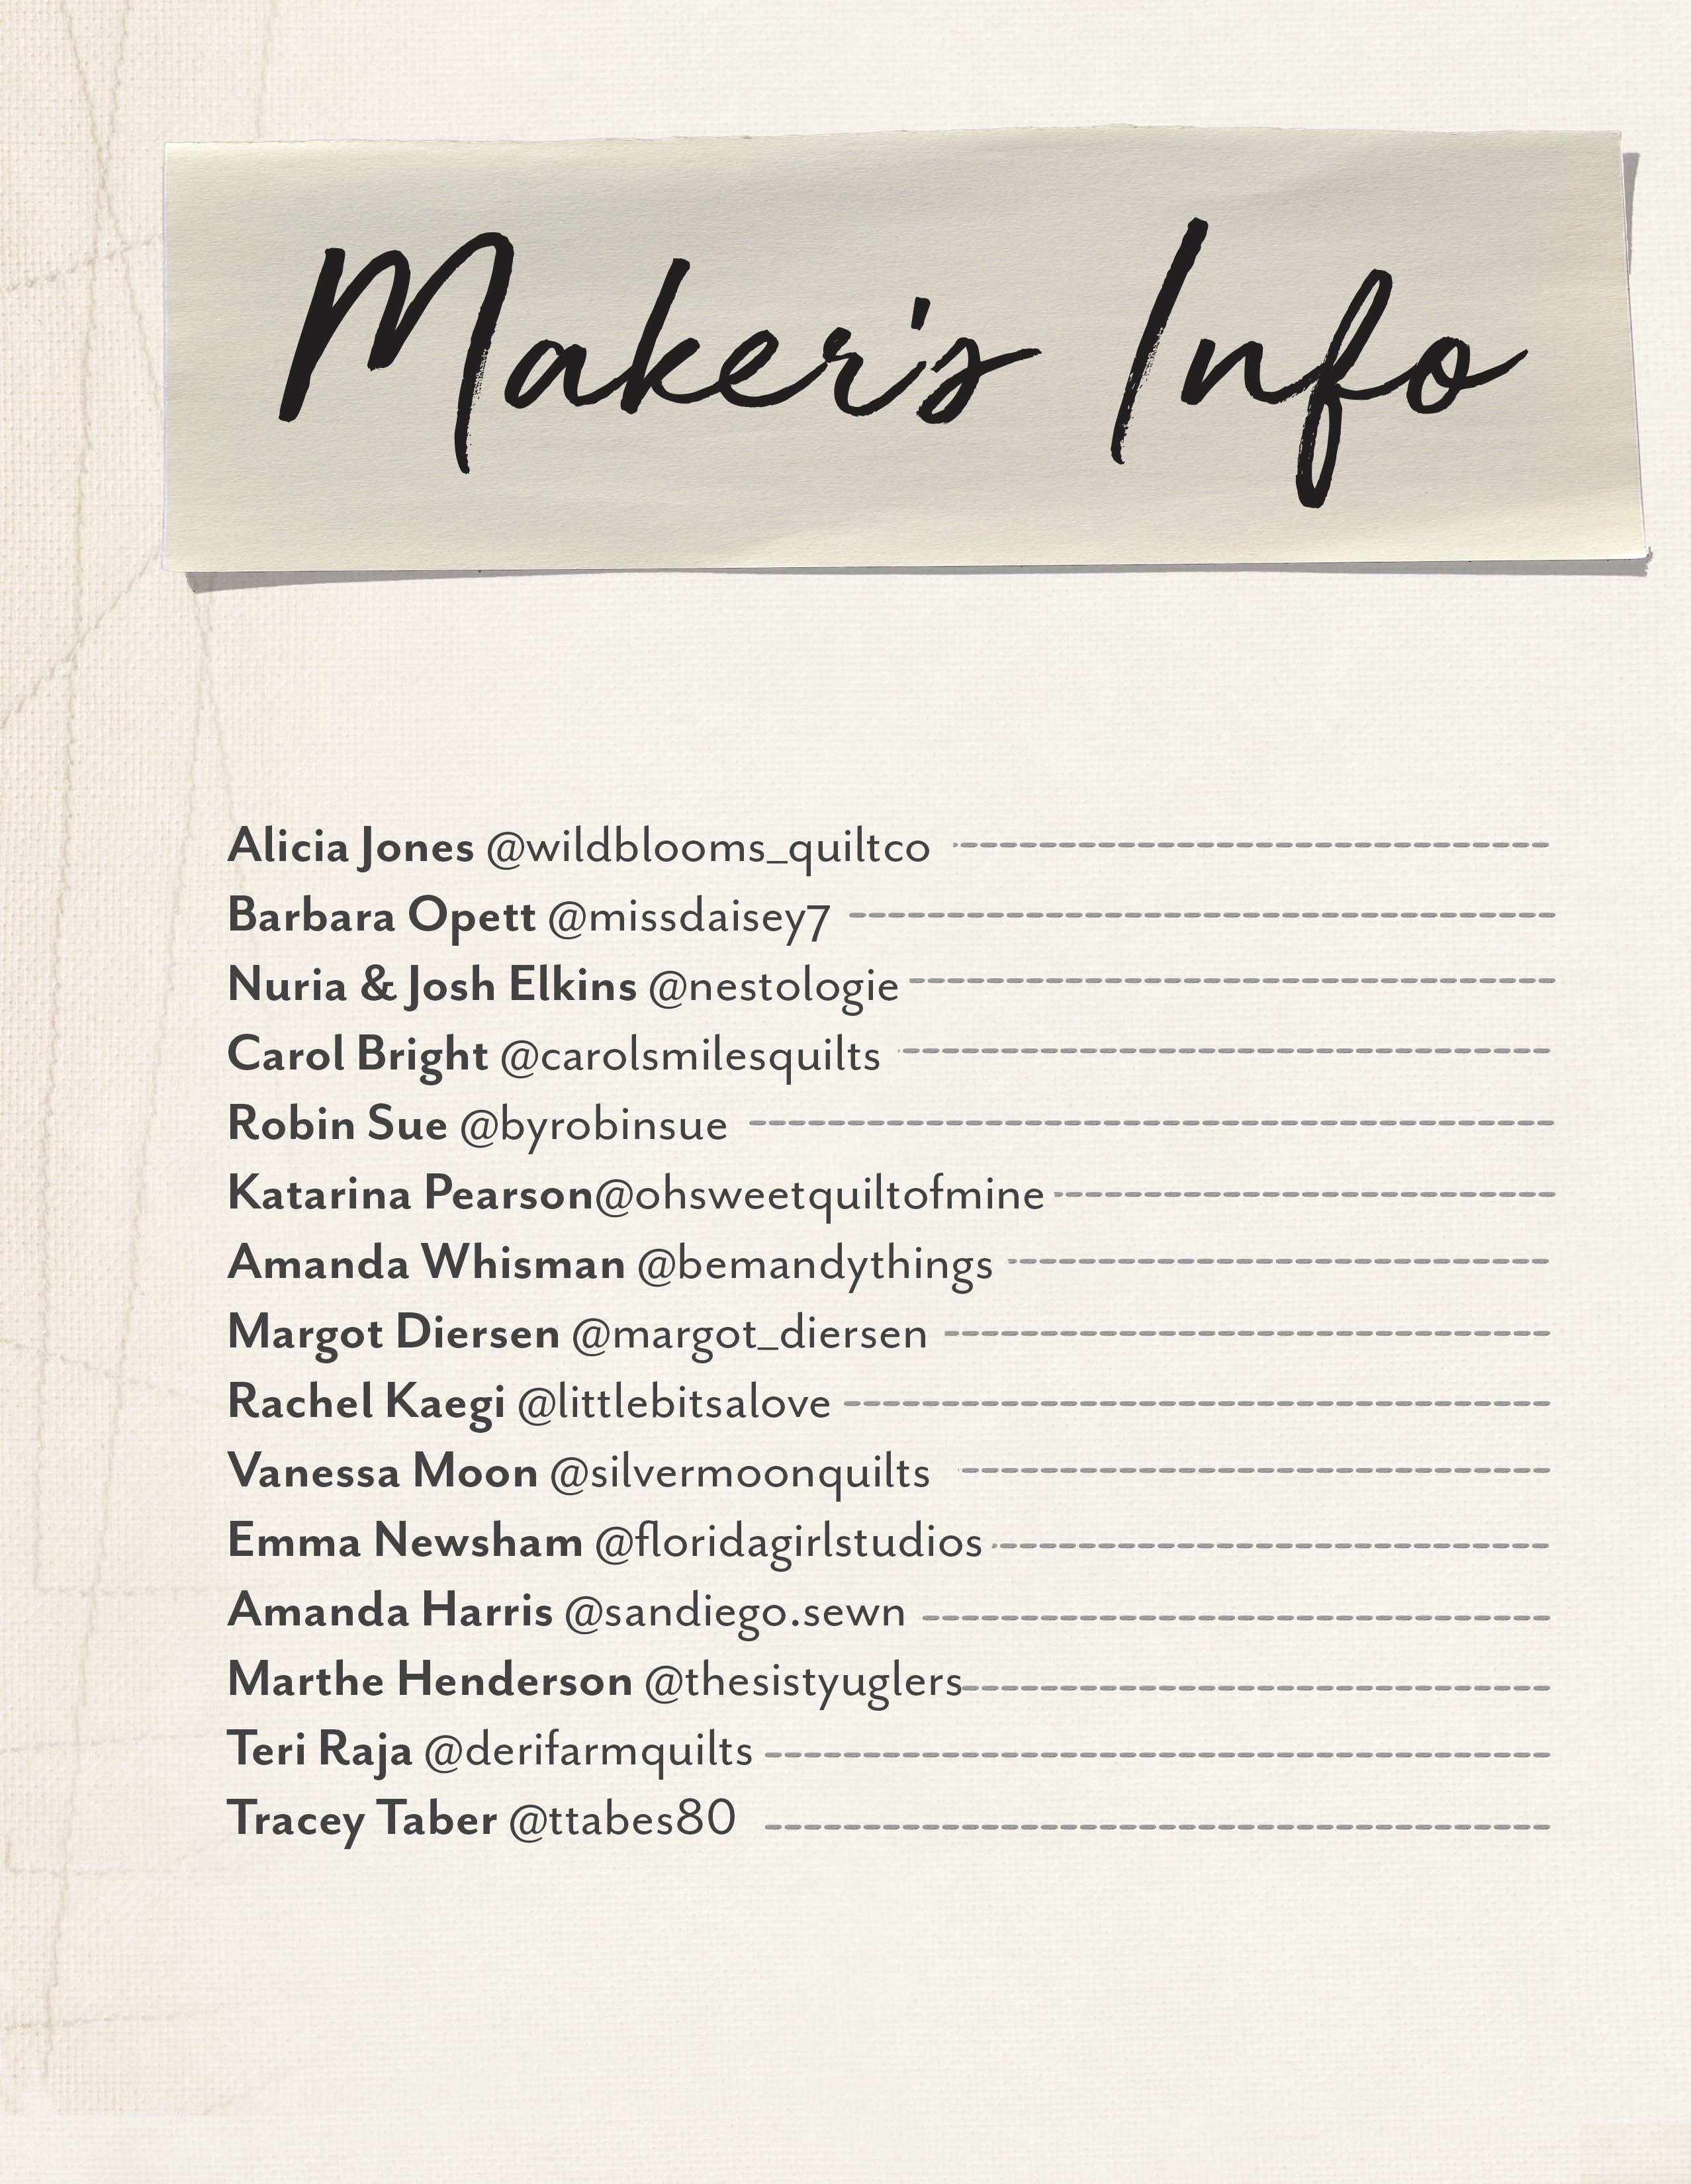 Maker's Info
Alicia Jones @wildblooms_quiltco
Barbara Opett @missdaisey7
Nuria & Josh Elkins @nestologie
Carol Bright @carolsmilesquilts
Robin Sue @byrobinsue
Katarina Pearson@ohsweetquiltofmine
Amanda Whisman @bemandythings
Margot Diersen @margot_diersen
Rachel Kaegi @littlebitsalove
Vanessa Moon @silvermoonquilts
Emma Newsham @floridagirlstudios
Amanda Harris @sandiego.sewn
Marthe Henderson @thesistyuglers
Teri Raja @derifarmquilts
Tracey Taber @ttabes80